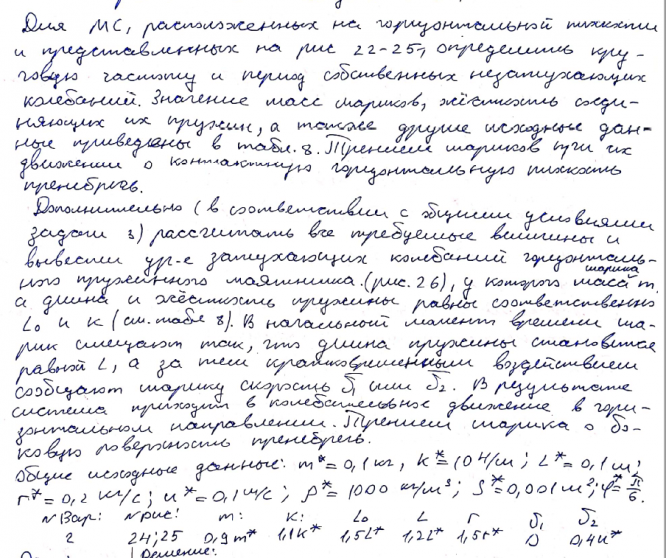 Для МС, расположенных на горизонтальной плоскости
и представленных на рис 22-25, определить кру-
говую частоту и период собственных незатухающих
колебаний. Значение масс шариков, жёсткость соеди-
няющих их пружин, а также другие исходные дан-
ные приведены в табл. 8. Трением шариков при их
движении о контактную горизонтальную плоскость
пренебречь.
Дополнительно (в соответствии с общими условиями
задачи 3) рассчитать все требуемые величины и
вывести ур-е затухающих колебаний горизонталь-
ного пружинного маятника (рис. 26), у которого масса шарика m,
а длина и жёсткость пружины равны соответственно
L₀ и k (см. табл 8). В начальный момент времени ша-
рик смещают так, что длина пружины становится
равной L, а затем кратковременным воздействием
сообщают шарику скорость υ̅₁ или υ̅₂. В результате
система приходит в колебательное движение в гори-
зонтальном направлении. Трением шарика о бо-
ковую поверхность пренебречь.
Общие исходные данные: m*=0,1 кг, k*=10 Н/м; L*=0,1 м;
r*=0,2 кг/с; u*=0,1 м/с; ρ*=1000 кг/м³; S*=0,001 м²; φ*=π/6.
№ Вар: № рис: m: k: L₀ L r υ̅₁ υ̅₂
2 24; 25 0,9m* 1,1k* 1,5L* 1,2L* 1,5r* 0 0,4u*
Решение: